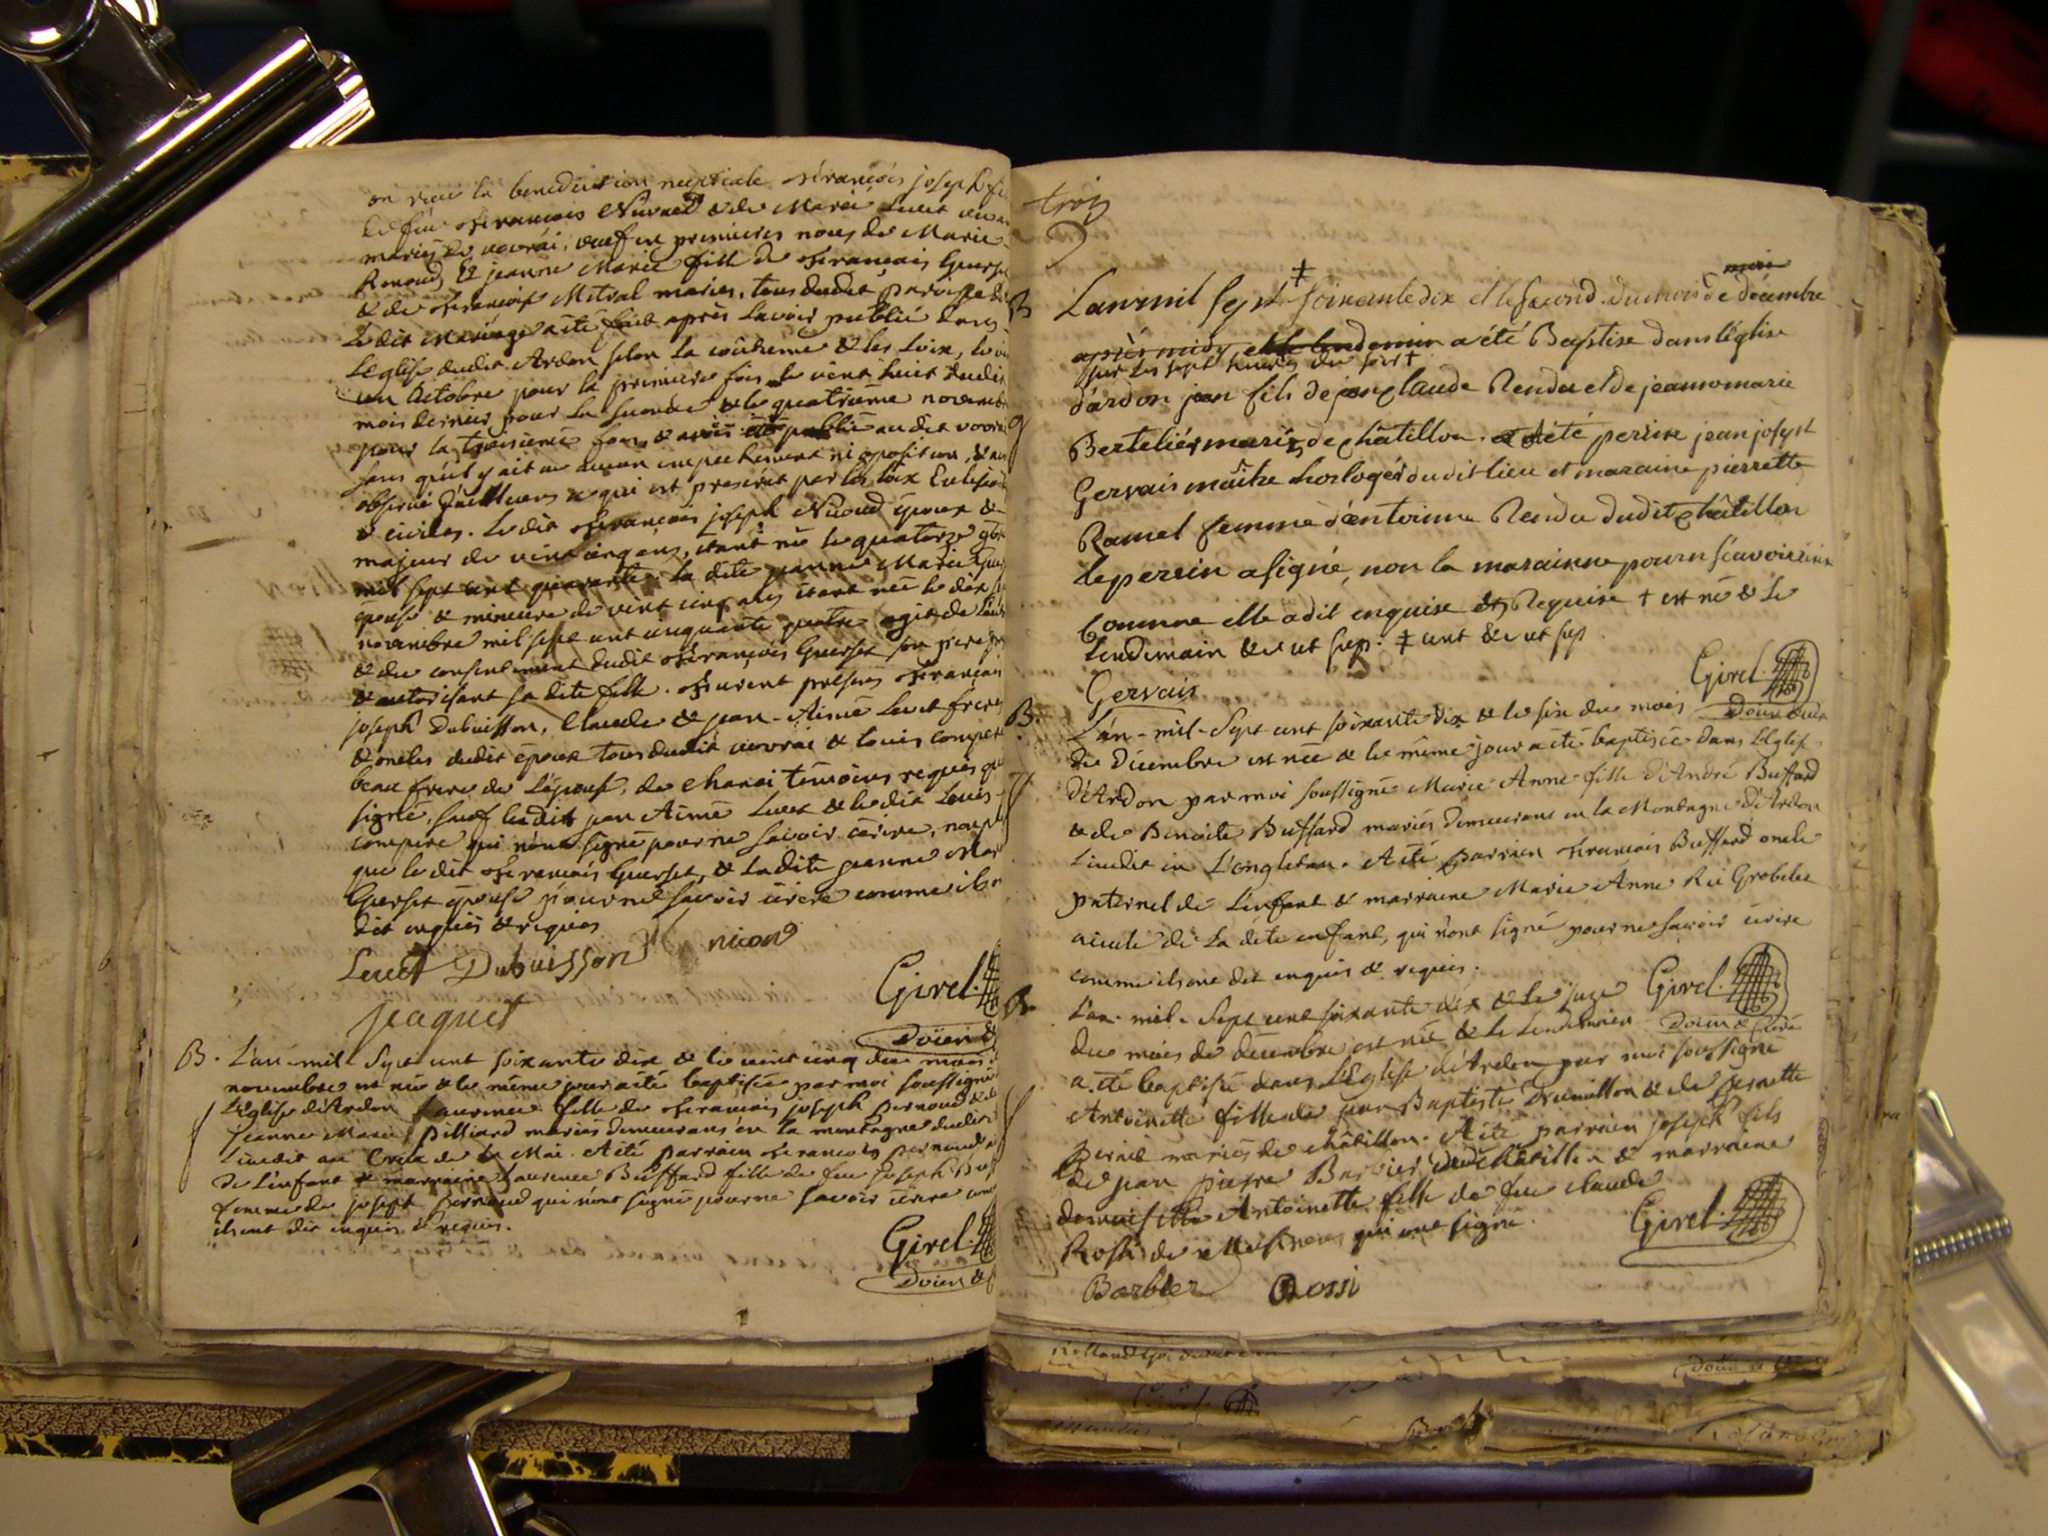 on reçu la benediction nuptiale françois joseph
de feu françois Nicoud & de Marie Levet
mariés de vovrai, veuf en premieres noces de Marie
Renaud & jeanne Marie fille de françois Guerset
& de françoise Mitral maries, tous dudit
Ledit Mariage a été fait après l'avoir publié dans
L'Eglise dudit Ardon selon la coûtume & les Loix, le
un Octobre pour la premiere fois, le vint huit dudit
mois dernier pour la seconde & le quatrieme novembre
pour la troisieme fois, & avoir été publié audit vovrai
sans qu'il y ait eu aucun empechement ni oposition, &
observé d'ailleurs ce qui est prescrit par les loix Eclesias
& civiles. Le dit françois joseph Nicoud époux &
majeur de vint cinq ans, étant né le quatorze
mil sept cent quarante. la dite jeanne Marie
épouse & mineure de vint cinq ans étant née le dix
novembre mil sept cent cinquante quatre agit de
& du consentement dudit françois Guerset son pere
& autorisant sa dite fille. furent présens françois
joseph Dubuisson, Claude & jean-Aimé Levet freres
& oncles dudit époux tous dudit vovrai & Louis compere
beau frere de L'épouse, de Chanai témoins requis qui
signé, sauf ledit jean Aimé Levet & ledit Louis
compere qui n'ont signé pour ne savoir écrire, non
que le dit françois Guerset, & La dite jeanne Marie
Guerset épouse pour ne savoir écrire comme ils
dit enquis & requis
Levet Dubuisson nicoud
Girel.
jeaquet
Doïen &
B. L'an-mil-sept cent soixante dix & le vint cinq du mois
novembre est née & le même jour a été baptisée par moi soussigné
L'Eglise d'Ardon Laurence fille de françois joseph Pernoud &
jeanne Marie Pilliard mariés demeurans en la montagne dudit
Lieudit au Creux de la Mai. A été parrain françois pernoud
de L'enfant & marraine Laurence Buffard fille de feu joseph
femme de joseph Pernoud qui n'ont signé pour ne savoir écrire
ils ont dit enquis & requis.
Girel.
Doïen &
trois
L'an mil sept ‡ soixante dix et le second du mois de décembre
après midy et le lendemin a été Baptise dans léglise
sur les sept heures du soir †
d'ardon jean fils de jean claude Rendu et de jeanne marie
Berteliér mariés de châtillon. a été perine jean josept
Gervais maître horlogér dudit lieu et maraine pierrette
Ramel femme d'entoinne Rendu dudit châtillon
le perrin a signé, non la marainne pour n sçavoir
Comme elle a dit enquise et Requise † est né & le
lendemain &c ut sup. ‡ cent &c ut sup
Gervais
Girel
Doïen & curé
B. L'an-mil-Sept cent soixante dix & le six du mois
de décembre est née & le même jour a été baptisée dans L'Eglise
d'Ardon par moi soussigné Marie Anne fille d'André Buffard
& de Benoite Buffard mariés demeurans en la Montagne d'Ardon
Lieudit en L'ongletan. A été parrain françois Buffard oncle
paternel de L'enfant & marraine Marie Anne Rei Grobelet
aieule de la dite enfant, qui n'ont signé pour ne savoir écrire
comme ils ont dit enquis & requis.
Girel.
Doïen & Curé
B. L'an-mil-Sept cent soixante dix & le seize
du mois de décembre est née & le Lendemain
a été baptisée dans L'Eglise d'Ardon par moi soussigné
Antoinette fille de jean Baptiste Dremillon & de pernette
mariés de châtillon. A été parrain joseph fils
de jean pierre Barbier dud Châtillon & marraine
demoiselle Antoinette fille de feu claude
Rossi de qui ont signé.
Girel.
Barbier Rossi